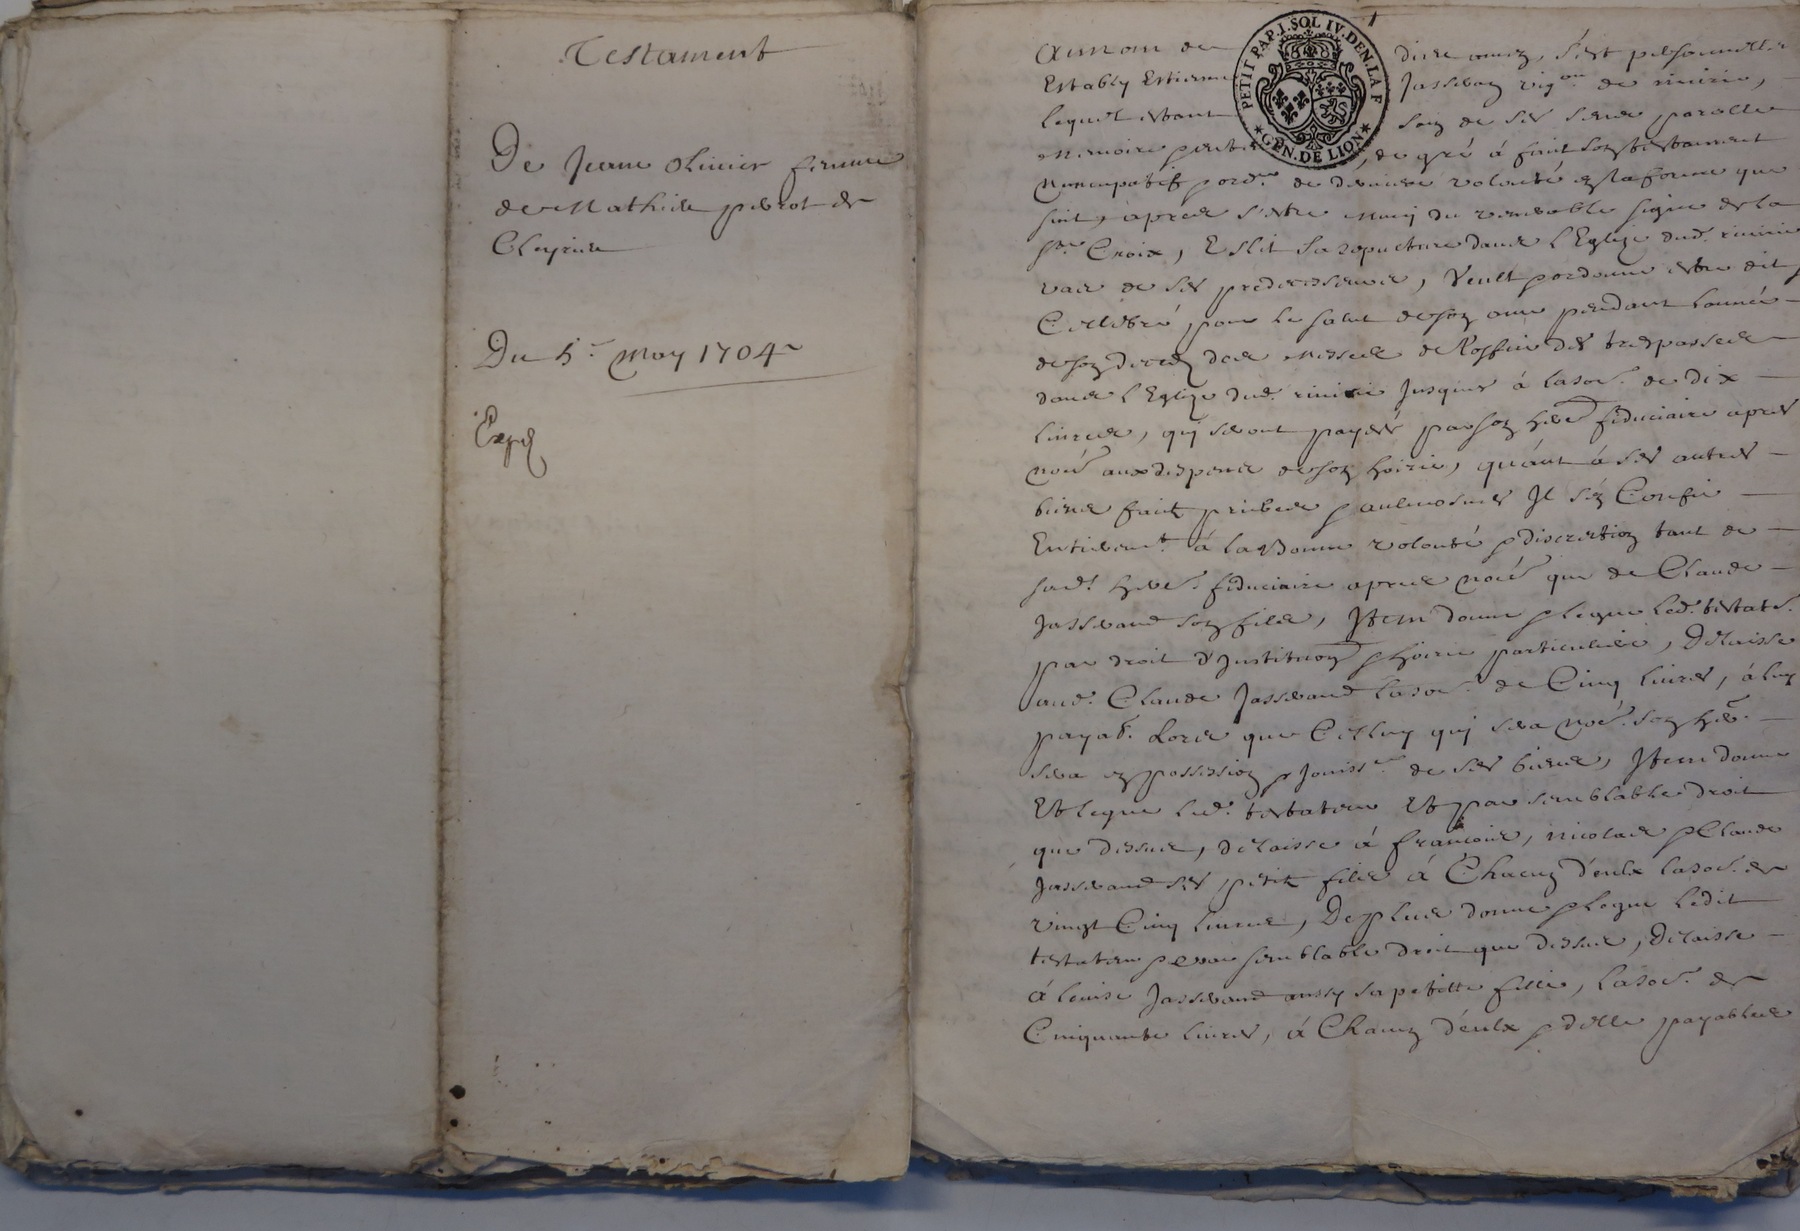 Testament
De Jeane Olinier femme
de Mathieu perrot de
Du 5e May 1704
Expé
1
PETIT PAP. I. SOL IV. DEN. LA F
GEN. DE LION
Au nom de dieu amen, s'est personnelle
Estably Estienne vigon de
lequel estant de ses sens parolle
memoire de gré à fait son testament
Nuncupatif de derniere volonté en la forme que
suit, apres s'estre muny du venerable signe de la
Ste Croix, Eslit sa sepulture dans l'Eglize dud.
de ses predecesseurs, Veult ordonne estre dit
Cellebré, pour le salut de son ame pendant l'année
de son deced des messes de des trespasses
dans l'Eglize dud. Jusques à la so. de dix
liures, qui seront payés par son her. fiduciaire apres
no. aux despens de son hoirie, quant à ses autres
biens faits aulmosnes Il s'en Confie
Entierem.t à la bonne volonté discrettion tant de
sad. her. fiduciaire apres no. que de Claude
son fils, Item donne legue led. testat.
par droit d'Institution hoirie particuliere, Delaisse
aud. Claude la so. de Cinq liures, à luy
payab. Lors que Celluy qui sera no. son her.
sera en possession Jouiss. de ses biens, Item donne
Et legue led. testateur Et par semblable droit
que dessus, delaisse à francois, nicolas Claude
ses petits fils à Chacun d'eulx la so. de
vingt Cinq liures, De plus donne legue ledit
testateur par semblable droit que dessus, Delaisse
à louise aussy sa petitte fille, la so. de
Cinquante liures, à Chacun d'eulx d'elle payables